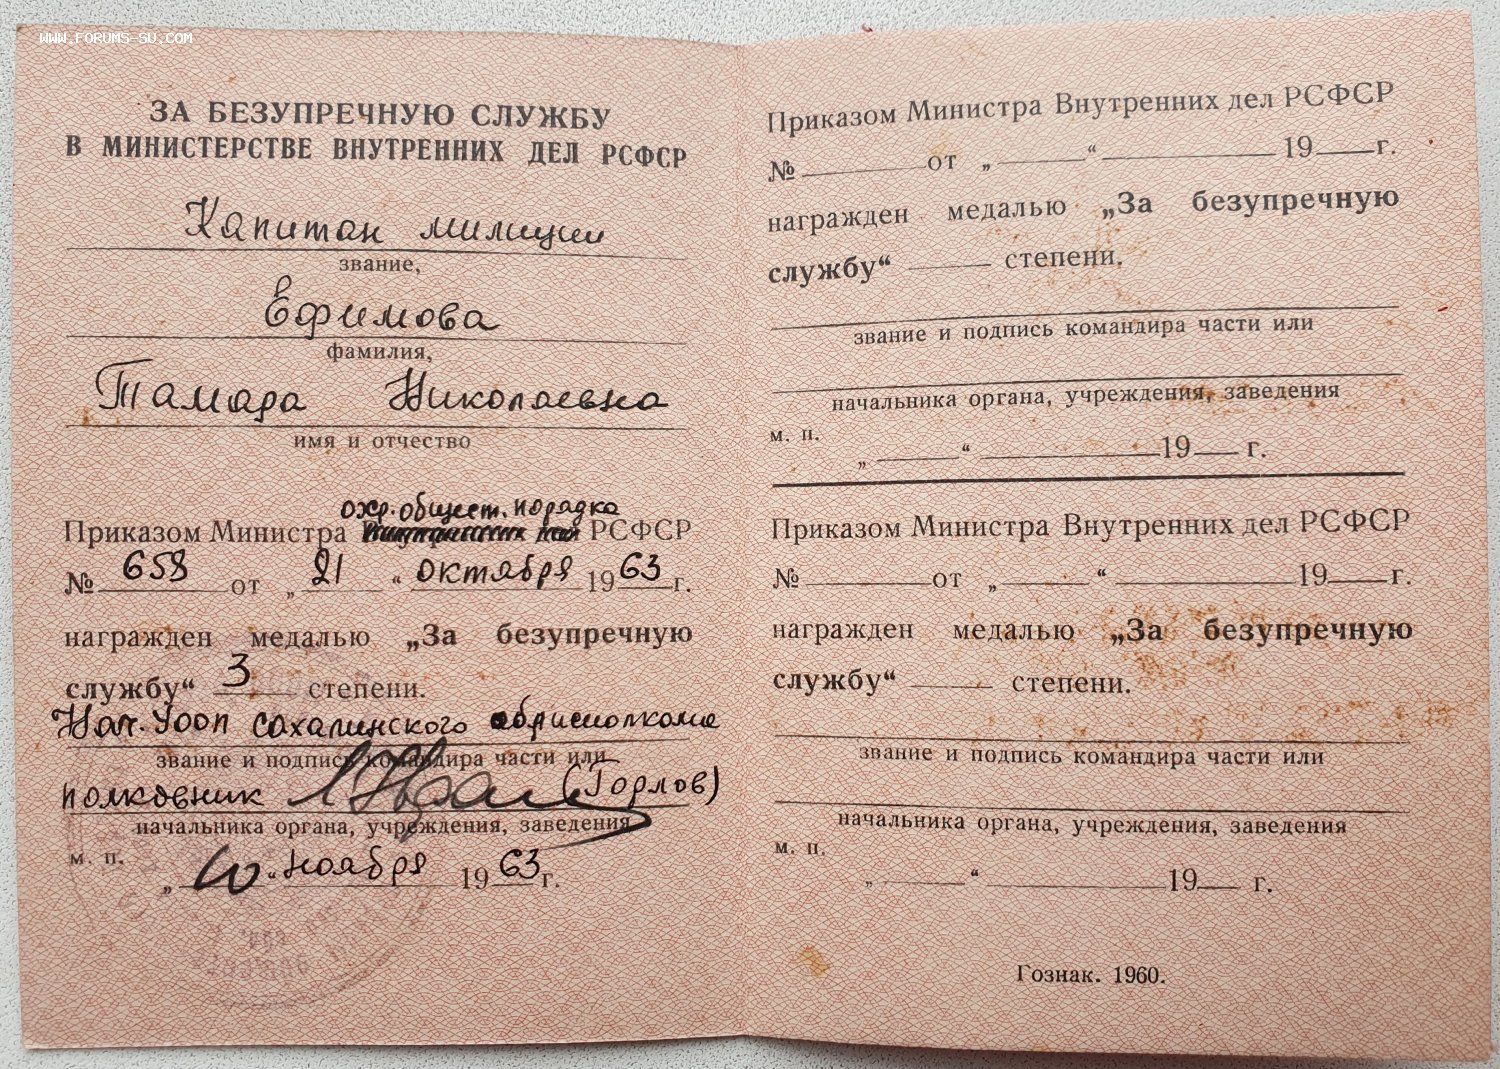 WWW.FORUMS-SU.COM
ЗА БЕЗУПРЕЧНУЮ СЛУЖБУ
В МИНИСТЕРСТВЕ ВНУТРЕННИХ ДЕЛ РСФСР
Капитан милиции
звание,
Ефимова
фамилия,
Тамара Николаевна
имя и отчество
охр. общест. порядка
Приказом Министра Внутренних дел РСФСР
№ 658 от „ 21 “ октября 1963 г.
награжден медалью „За безупречную
службу“ 3 степени.
Нач. Уооп сахалинского облисполкома
звание и подпись командира части или
полковник (Горлов)
начальника органа, учреждения, заведения
м. п.
„ 10 “ ноября 1963 г.
Приказом Министра Внутренних дел РСФСР
№ от „ “ 19 г.
награжден медалью „За безупречную
службу“ степени.
звание и подпись командира части или
начальника органа, учреждения, заведения
м. п.
„ “ 19 г.
Приказом Министра Внутренних дел РСФСР
№ от „ “ 19 г.
награжден медалью „За безупречную
службу“ степени.
звание и подпись командира части или
начальника органа, учреждения, заведения
м. п.
„ “ 19 г.
Гознак. 1960.